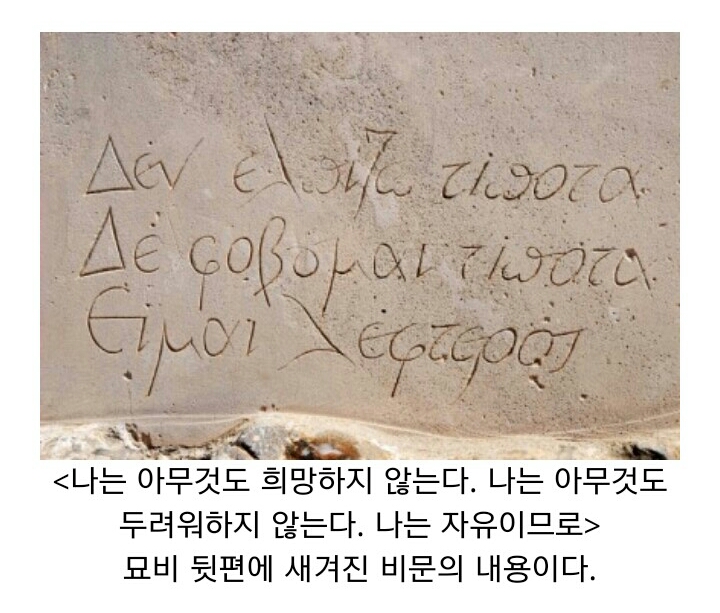 Δεν ελπιζω τιποτα
Δε φοβομαι τιποτα
Ειμαι λεφτερος
<나는 아무것도 희망하지 않는다. 나는 아무것도
두려워하지 않는다. 나는 자유이므로>
묘비 뒷편에 새겨진 비문의 내용이다.